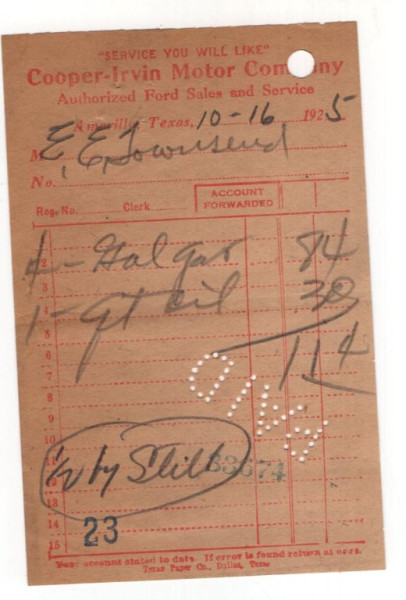 "SERVICE YOU WILL LIKE"
Cooper-Irvin Motor Company
Authorized Ford Sales and Service
Amarillo, Texas, 10-16 1925
M E. E. Townsend
No.
Reg. No. Clerk ACCOUNT FORWARDED
2 4 - Gal gas 84
3
4 1 - qt oil 30
5
6 114
7
8
9
PAID
10
11
by Still 33674
13
14 23
15
Your account stated to date. If error is found return at once.
Texas Paper Co., Dallas, Texas